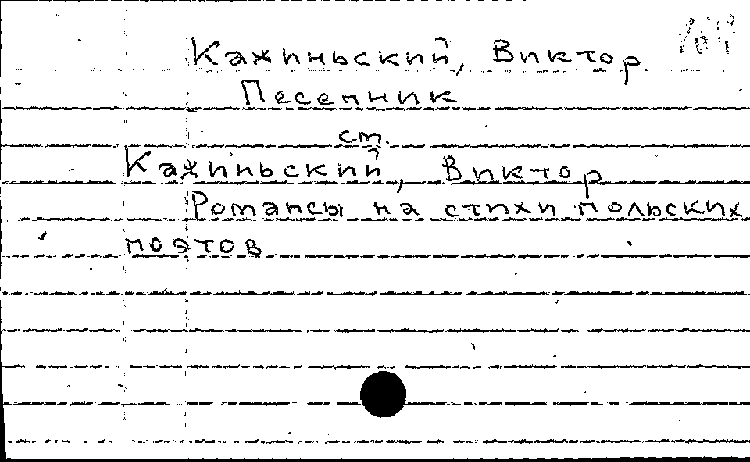 Кажиньский, Виктор
Песенник
ст.
Кажиньский, Виктор
Романсы на стихи польских
поэтов